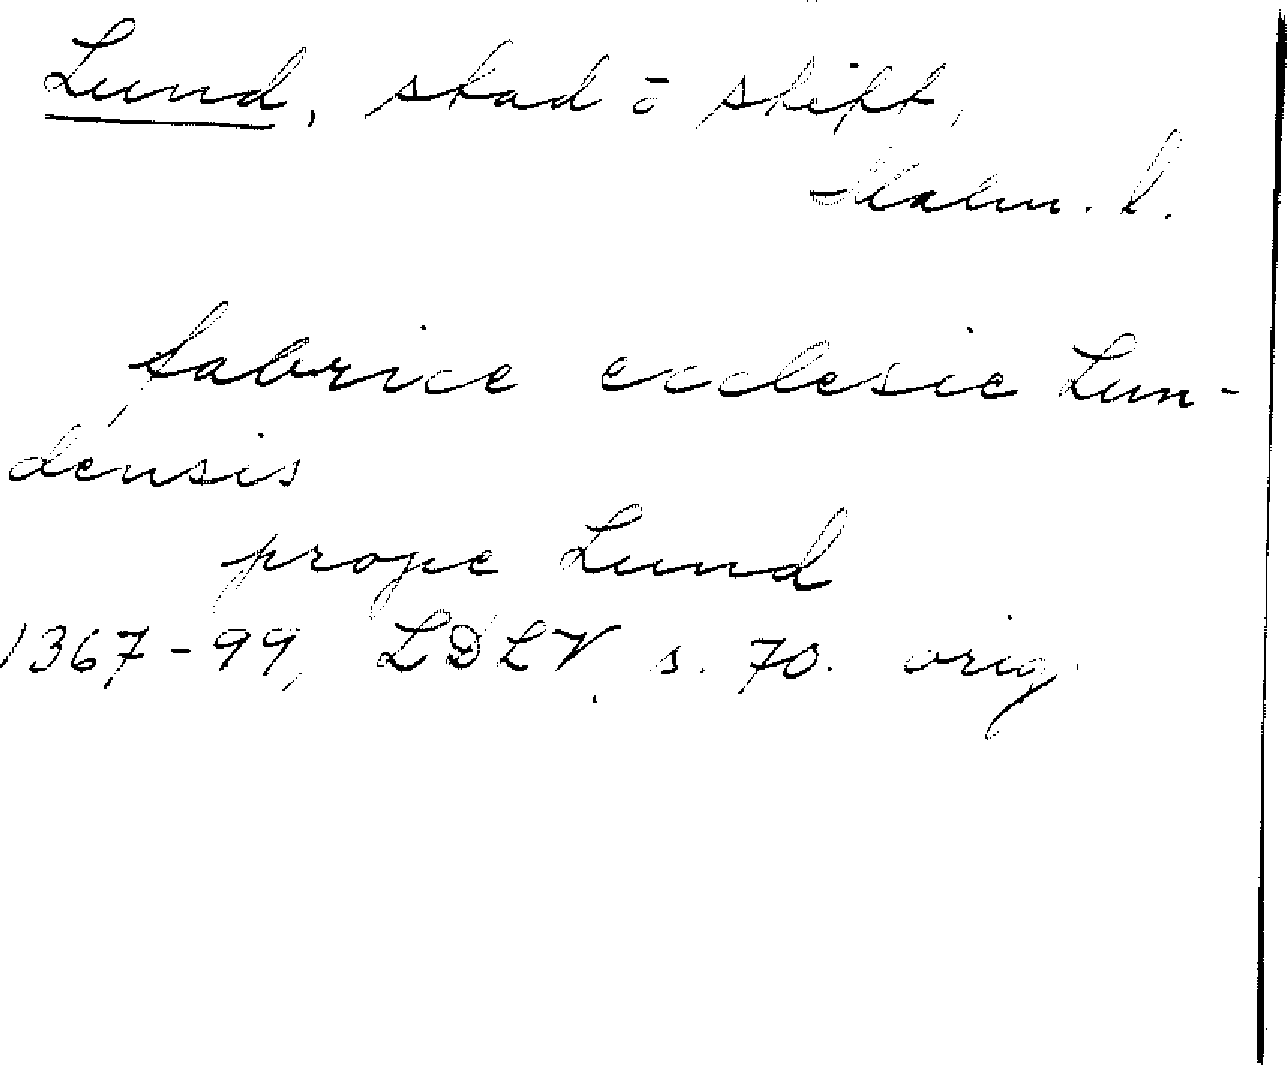 Lund, stad o stift,
Malm. l.
fabrice ecclesie Lun-
densis
prope Lund
1367-99, LDLV, s. 70. orig